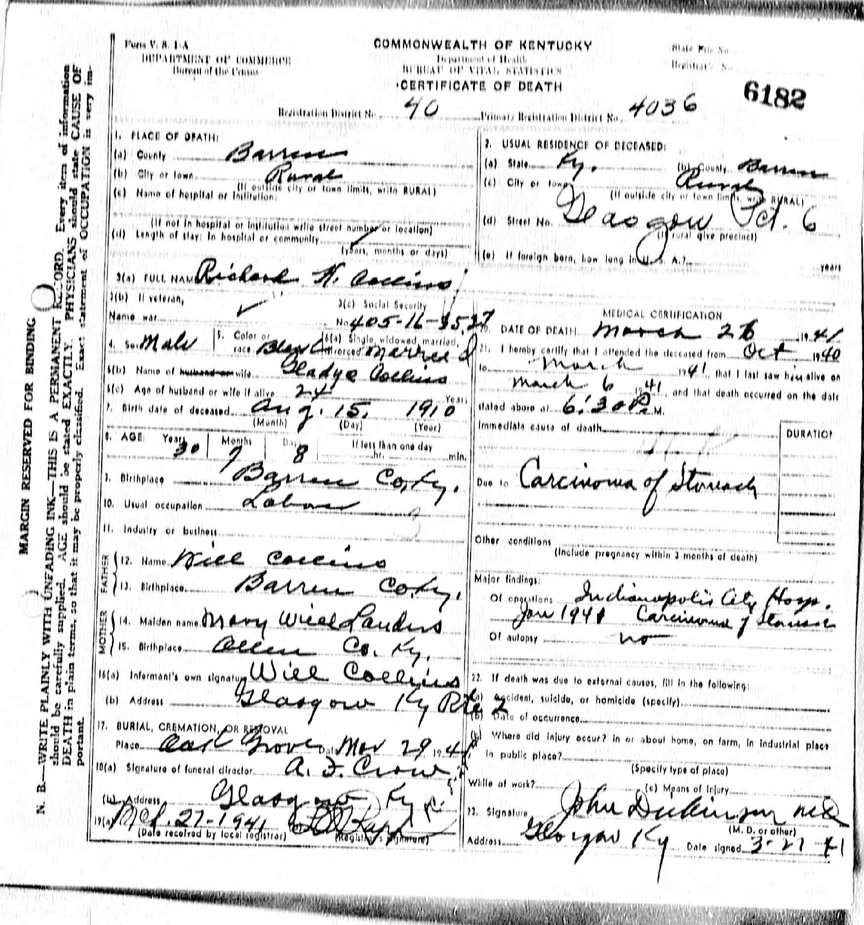 Form V. S. 1-A
DEPARTMENT OF COMMERCE
Bureau of the Census
COMMONWEALTH OF KENTUCKY
Department of Health
BUREAU OF VITAL STATISTICS
CERTIFICATE OF DEATH
State File No.
Registrar's No.
6182
Registration District No. 40
Primary Registration District No. 4036
MARGIN RESERVED FOR BINDING
N. B.—WRITE PLAINLY WITH UNFADING INK—THIS IS A PERMANENT RECORD. Every item of information
should be carefully supplied. AGE should be stated EXACTLY. PHYSICIANS should state CAUSE OF
DEATH in plain terms, so that it may be properly classified. Exact statement of OCCUPATION is very im-
portant.
1. PLACE OF DEATH:
(a) County Barren
(b) City or town Rural
(If outside city or town limits, write RURAL)
(c) Name of hospital or Institution:
(If not in hospital or institution write street number or location)
(d) Length of stay: In hospital or community
(years, months or days)
2. USUAL RESIDENCE OF DECEASED:
(a) State Ky. (b) County Barren
(c) City or town Rural
(If outside city or town limits, write RURAL)
(d) Street No. Glasgow Pct. 6
(If rural give precinct)
(e) If foreign born, how long in U. S. A.? years
3(a) FULL NAME Richard H. Collins
3(b) If veteran,
Name war
3(c) Social Security
No. 405-16-3527
4. Sex Male
5. Color or
race Black
6(a) Single, widowed, married,
divorced Married
6(b) Name of husband or wife Gladys Collins
6(c) Age of husband or wife if alive 24 Years
7. Birth date of deceased Aug. 15, 1910
(Month) (Day) (Year)
8. AGE: Years 30 Months 7 Days 8 If less than one day
hr. min.
9. Birthplace Barren Co. Ky.
10. Usual occupation Labor
11. Industry or business
FATHER
12. Name Will Collins
13. Birthplace Barren Co Ky.
MOTHER
14. Maiden name Mary Landers
15. Birthplace Allen Co. Ky.
16(a) Informant's own signature Will Collins
(b) Address Glasgow Ky Rte 2
17. BURIAL, CREMATION, OR REMOVAL
Place Oak Grove Date Mar 29 1941
18(a) Signature of funeral director A. F. Crow
(b) Address Glasgow Ky.
19(a) Mch. 27-1941
(Date received by local registrar) (Registrar's signature)
MEDICAL CERTIFICATION
20. DATE OF DEATH March 26 1941
21. I hereby certify that I attended the deceased from Oct 1940
to March 1941, that I last saw him alive on
March 6 1941, and that death occurred on the date
stated above at 6:30 P M.
Immediate cause of death
DURATION
Due to Carcinoma of Stomach
Other conditions
(Include pregnancy within 3 months of death)
Major findings:
Of operations Indianapolis City Hosp.
Jan 1941 Carcinoma of Stomach
Of autopsy no
22. If death was due to external causes, fill in the following:
(a) Accident, suicide, or homicide (specify)
(b) Date of occurrence
Where did injury occur? in or about home, on farm, in industrial place
in public place?
(Specify type of place)
While at work? (c) Means of Injury
23. Signature John Dickinson MD
(M. D. or other)
Address Glasgow Ky Date signed 3-27 41